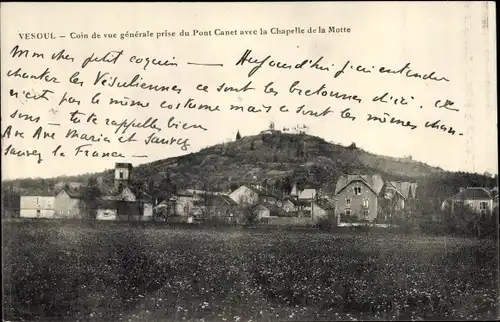 VESOUL - Coin de vue générale prise du Pont Canet avec la Chapelle de la Motte
Mon cher petit coquin —
Aujourd'hui j'ai entendu
chanter les Vésuliennes — ce sont les
bretonnes d'ici. ce
n'est pas le même costume mais ce sont les mêmes chan-
sons — tu te rappelles bien
Ave Ave Maria et Sauvez
Sauvez la France —